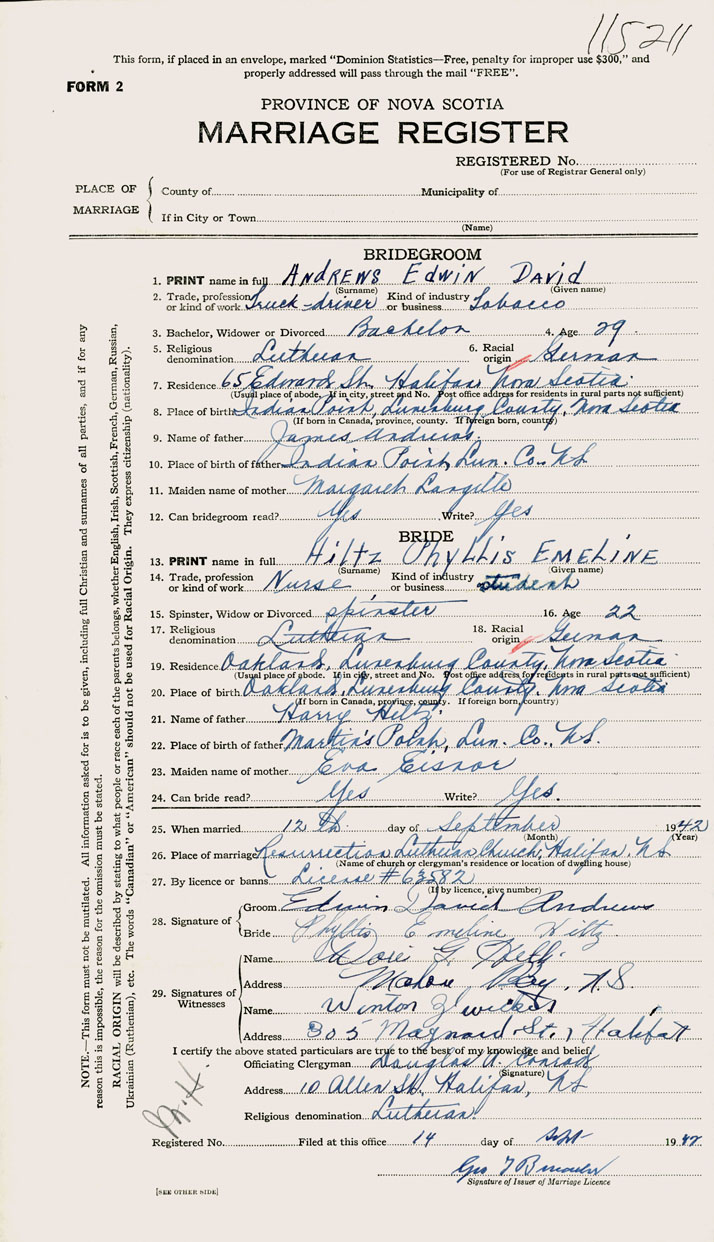 115211
This form, if placed in an envelope, marked "Dominion Statistics—Free, penalty for improper use $300," and
properly addressed will pass through the mail "FREE".
FORM 2
PROVINCE OF NOVA SCOTIA
MARRIAGE REGISTER
REGISTERED No.
(For use of Registrar General only)
PLACE OF MARRIAGE
County of Municipality of
If in City or Town
(Name)
BRIDEGROOM
1. PRINT name in full ANDREWS EDWIN DAVID
(Surname) (Given name)
2. Trade, profession or kind of work Truck-driver Kind of industry or business Tobacco
3. Bachelor, Widower or Divorced Bachelor 4. Age 29
5. Religious denomination Lutheran 6. Racial origin German
7. Residence 65 Edward St. Halifax Nova Scotia
(Usual place of abode. If in city, street and No. Post office address for residents in rural parts not sufficient)
8. Place of birth Indian Point, Lunenburg County, Nova Scotia
(If born in Canada, province, county. If foreign born, country)
9. Name of father James Andrews
10. Place of birth of father Indian Point, Lun. Co. N.S.
11. Maiden name of mother Margaret Langille
12. Can bridegroom read? Yes Write? Yes
BRIDE
13. PRINT name in full HILTZ PHYLLIS EMELINE
(Surname) (Given name)
14. Trade, profession or kind of work Nurse Kind of industry or business student
15. Spinster, Widow or Divorced spinster 16. Age 22
17. Religious denomination Lutheran 18. Racial origin German
19. Residence Oakland, Lunenburg County, Nova Scotia
(Usual place of abode. If in city, street and No. Post office address for residents in rural parts not sufficient)
20. Place of birth Oakland, Lunenburg County, Nova Scotia
(If born in Canada, province, county. If foreign born, country)
21. Name of father Harry Hiltz
22. Place of birth of father Martin's Point, Lun. Co., N.S.
23. Maiden name of mother Eva Eisnor
24. Can bride read? Yes Write? Yes.
25. When married 12th day of September 1942
(Month) (Year)
26. Place of marriage Resurrection Lutheran Church, Halifax. N.S.
(Name of church or clergyman's residence or location of dwelling house)
27. By licence or banns License # 63582
(If by licence, give number)
28. Signature of
Groom Edwin David Andrews
Bride Phyllis Emeline Hiltz
29. Signatures of Witnesses
Name G.
Address Mahone Bay, N.S.
Name Winton Zwicker
Address 305 Maynard St., Halifax
I certify the above stated particulars are true to the best of my knowledge and belief.
Officiating Clergyman Douglas A. Conrad
(Signature)
Address 10 Allen St., Halifax, N.S.
Religious denomination Lutheran.
Registered No. Filed at this office 14 day of Sept 1942
Geo
Signature of Issuer of Marriage Licence
[SEE OTHER SIDE]
NOTE.—This form must not be mutilated. All information asked for is to be given, including full Christian and surnames of all parties, and if for any
reason this is impossible, the reason for the omission must be stated.
RACIAL ORIGIN will be described by stating to what people or race each of the parents belongs, whether English, Irish, Scottish, French, German, Russian,
Ukrainian (Ruthenian), etc. The words "Canadian" or "American" should not be used for Racial Origin. They express citizenship (nationality).